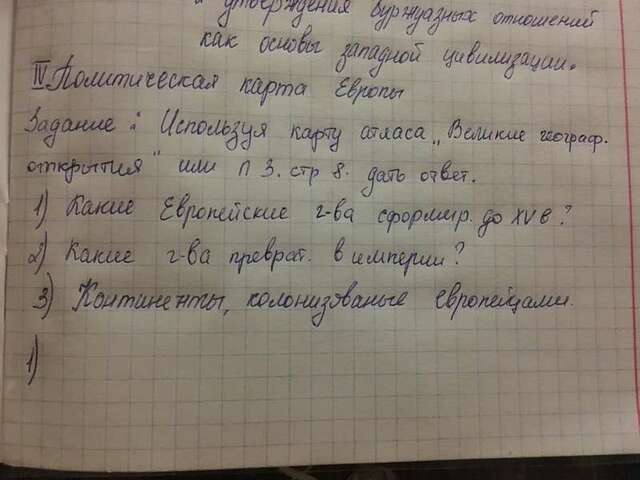 и утверждения буржуазных отношений
как основы западной цивилизации.
IV Политическая карта Европы
Задание: Используя карту атласа „Великие географ.
открытия" или п 3. стр 8. дать ответ.
1) Какие Европейские г-ва сформир. до XV в?
2) Какие г-ва преврат. в империи?
3) Континенты, колонизованые европейцами.
1)